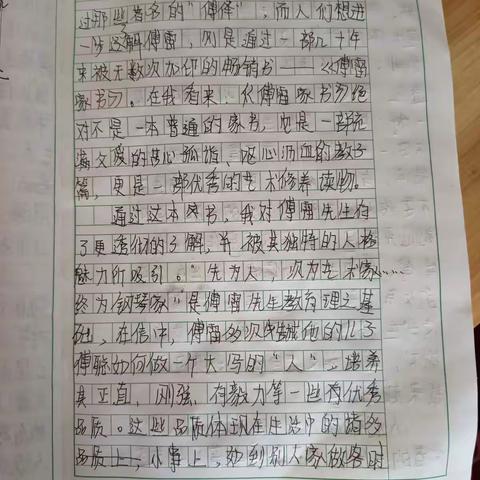 过那些著名的“傅译”；而人们想进
一步了解傅雷，则是通过一部几十年
来被无数次加印的畅销书——《傅雷
家书》。在我看来，《傅雷家书》绝
对不是一本普通的家书，也是一部充
满父爱的苦心孤诣、呕心沥血的教子
篇，更是一部优秀的艺术修养读物。
通过这本书，我对傅雷先生有
了更透彻的了解，并被其独特的人格
魅力所吸引。“先为人，次为艺术家……
终为钢琴家”是傅雷先生教育理之基
础，在信中，傅雷多次告诫他的儿子
傅聪如何做一个大写的“人”，培养
其正直，刚强，有毅力等一些列优秀
品质。这些品质体现在生活中的诸多
品质上，小事上，如到别人家做客时